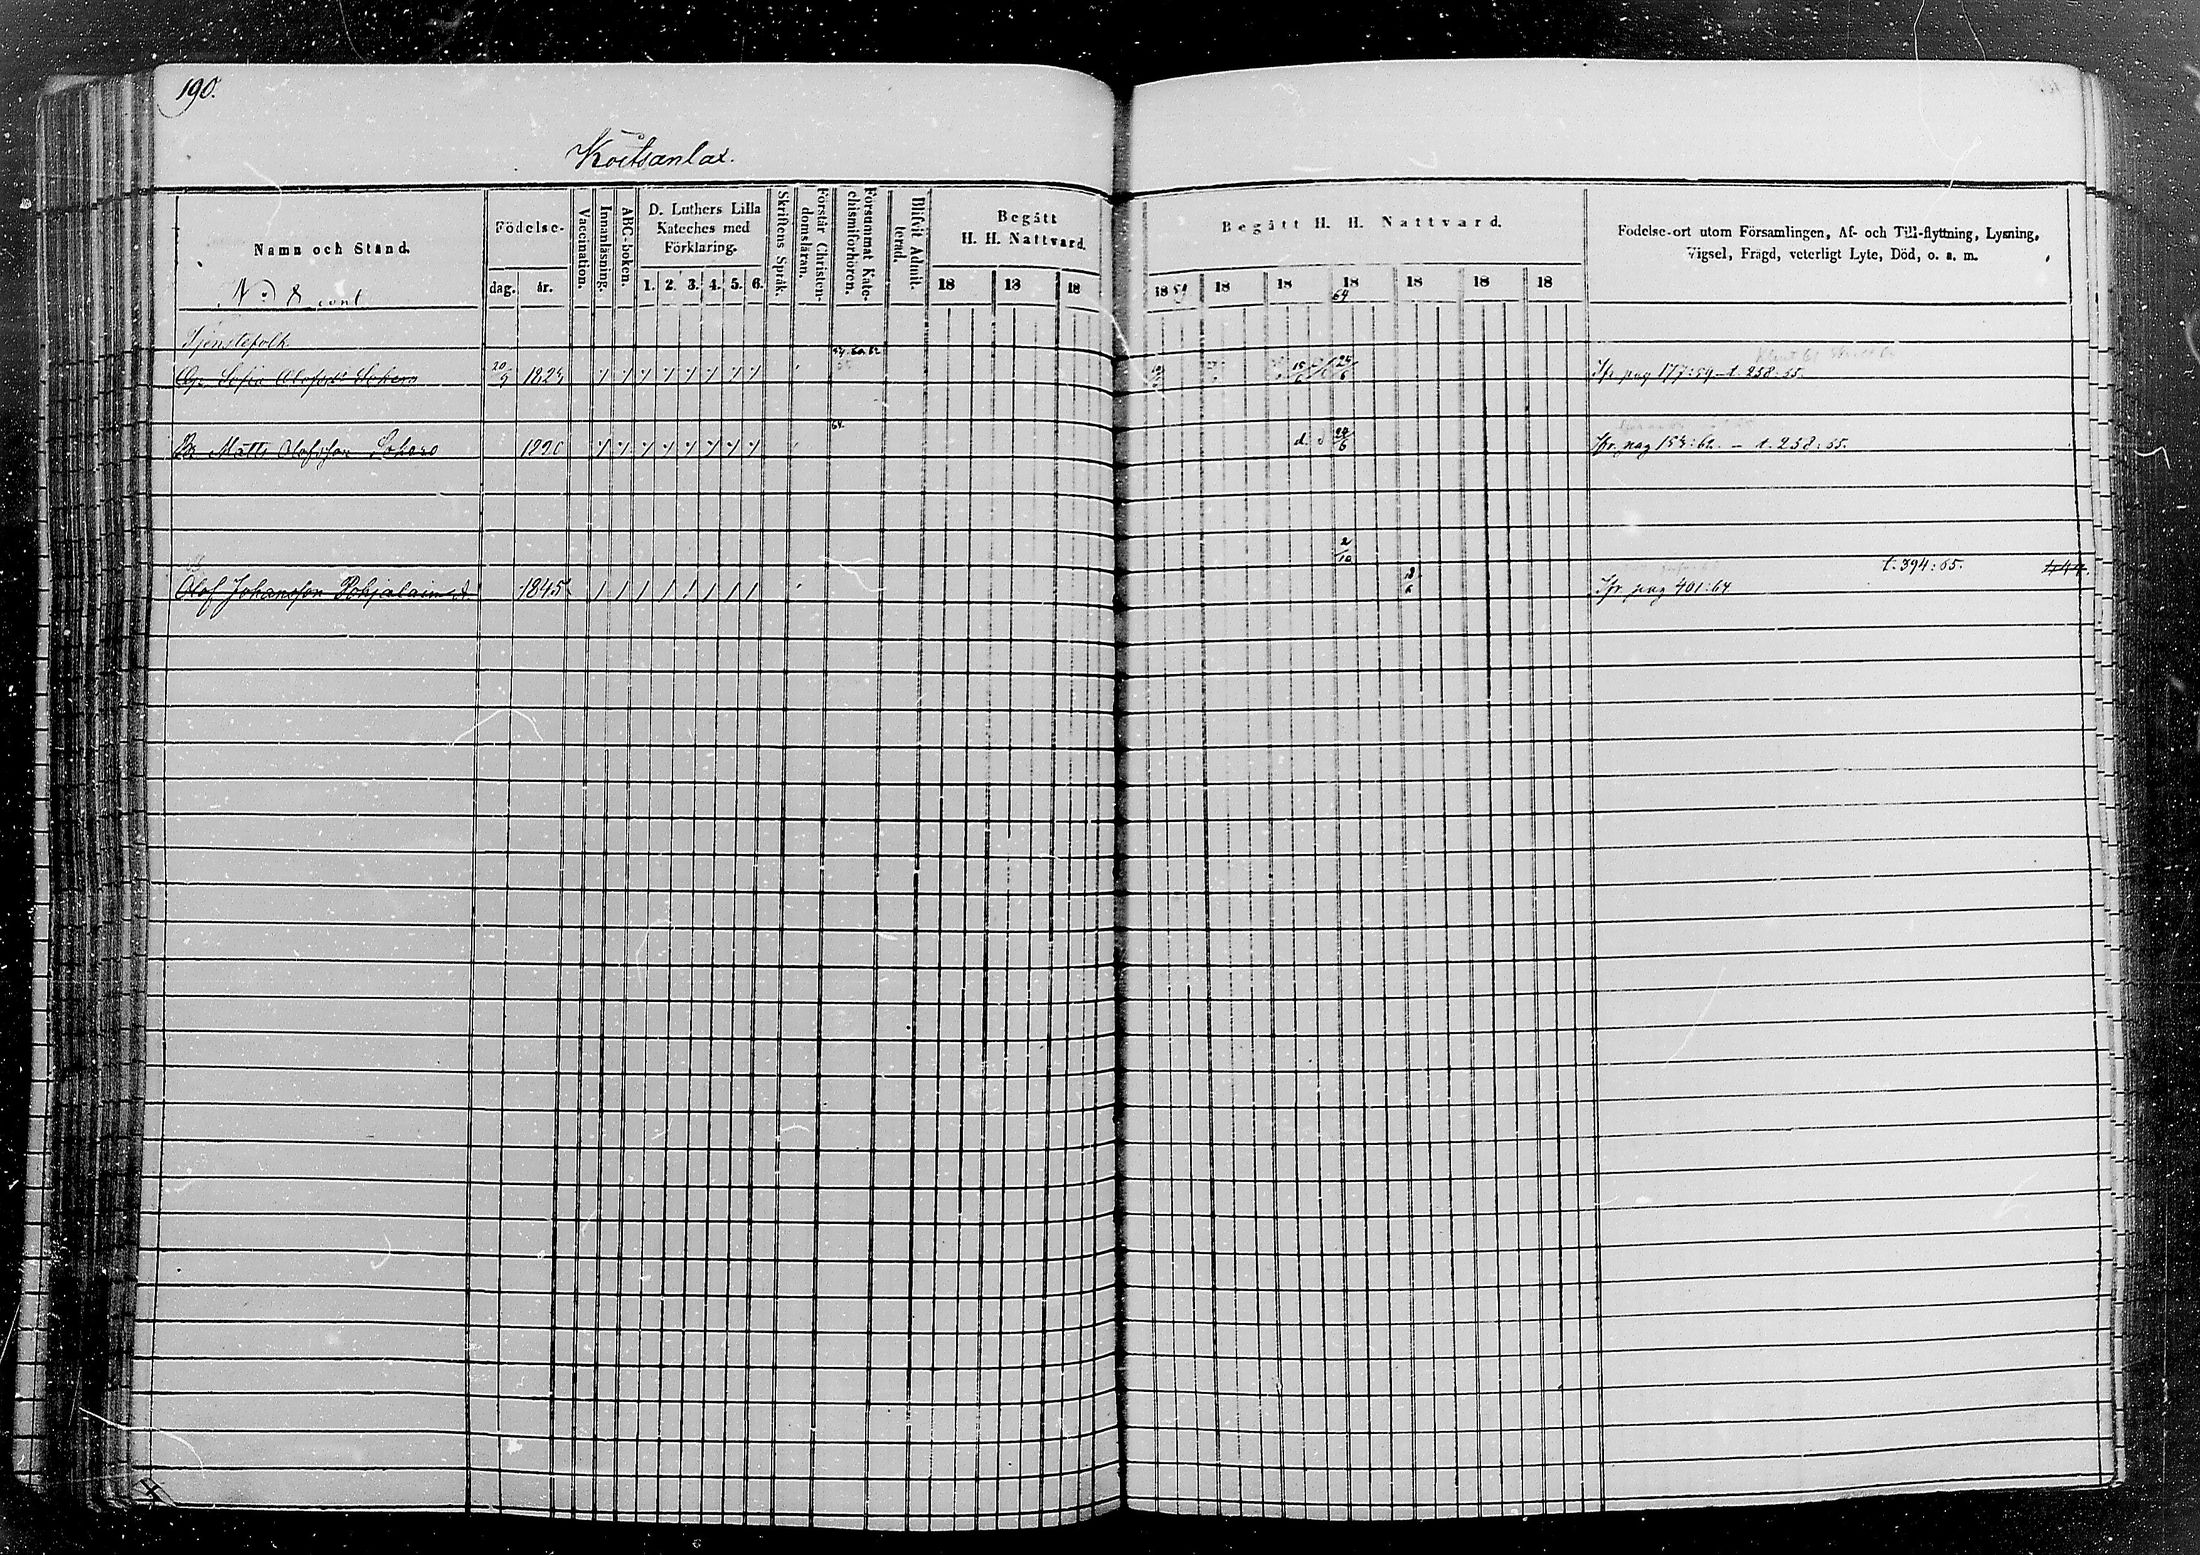 190.
Koitsanlax.
Namn och Stånd.
Födelse-
dag. år.
Vaccination.
Innanläsning.
ABC-boken.
D. Luthers Lilla
Kateches med
Förklaring.
1. 2. 3. 4. 5. 6.
Skriftens Språk.
Förstår Christen-
domsläran.
Försummat Kate-
chismiförhören.
Blifvit Admit-
terad.
Begått
H. H. Nattvard.
18 18 18
Begått H. H. Nattvard.
18 59 18 18 18 64 18 18 18
Födelse-ort utom Församlingen, Af- och Till-flyttning, Lysning,
Vigsel, Frägd, veterligt Lyte, Död, o. s. m.
N:o 8 cont
Tjenstefolk
Sofia Olofsd:r Sokero 20/9 1823 24/6 Ifr pag 177:59 - t. 258:65.
Matts Olofsson Sokero 1820 64. 24/6 Ifr. pag 153:62. - t. 258:65.
2/10
t. 394:65.
Olof Johansson Pohjalainen 1845 Ifr pag 401:64